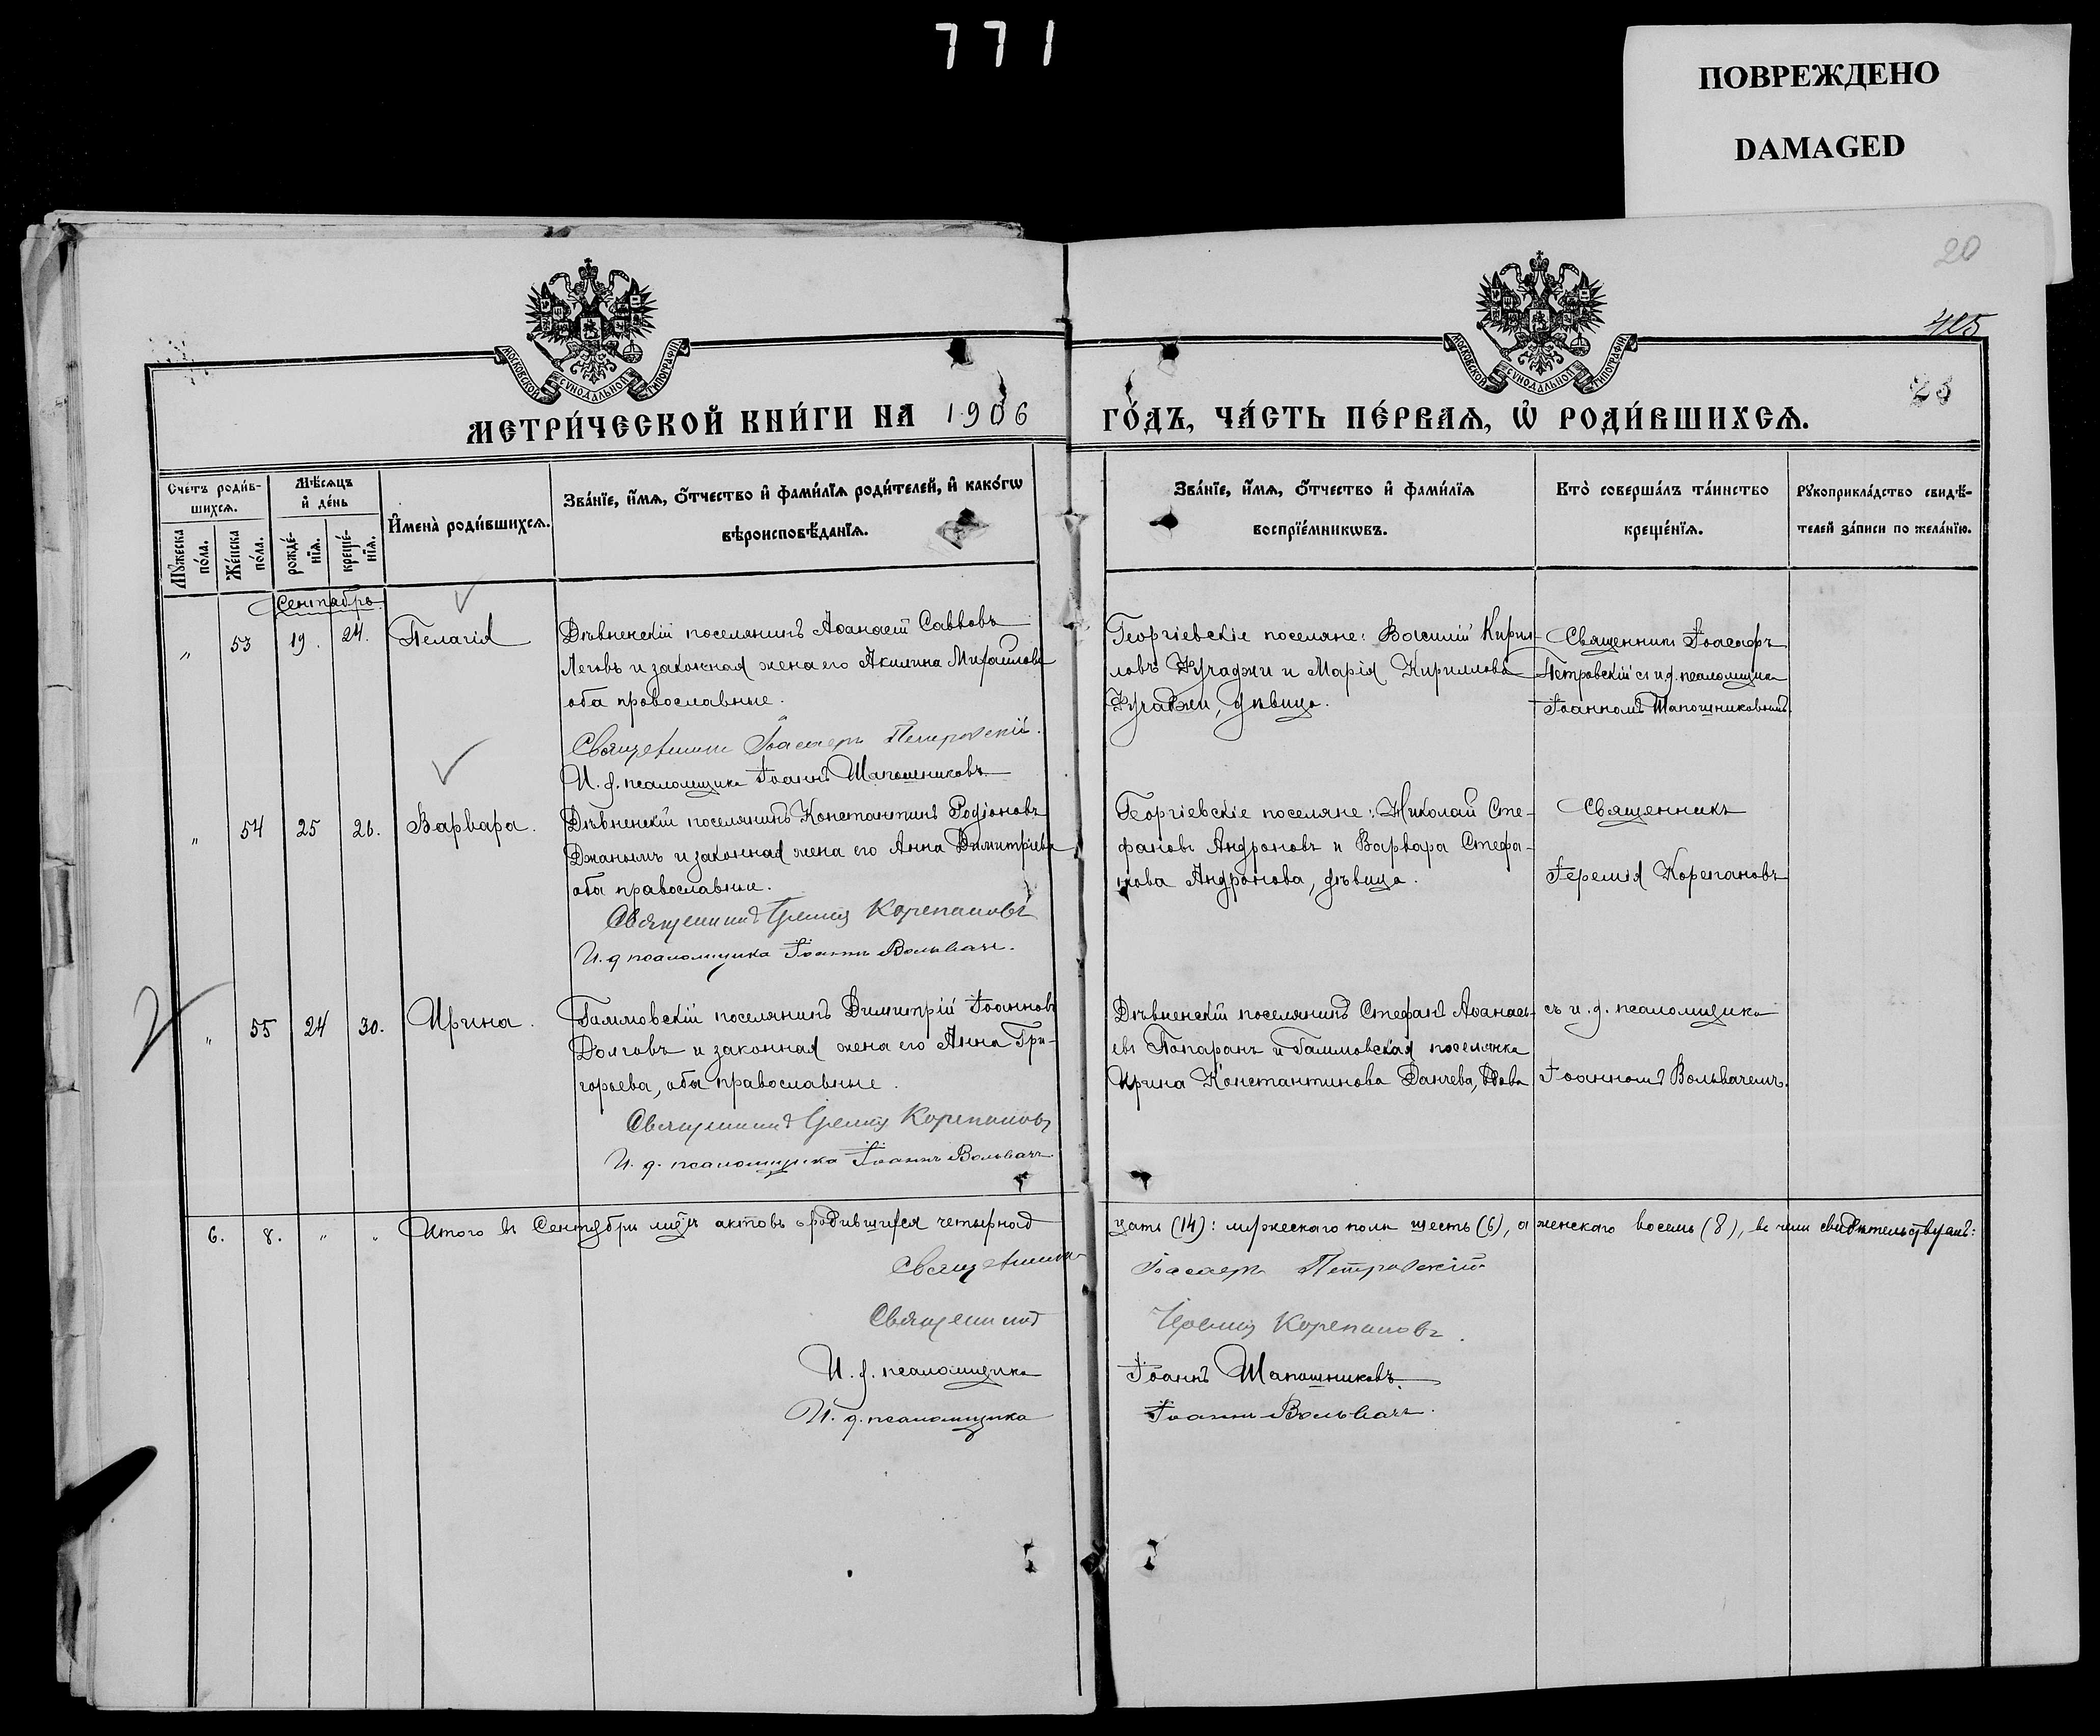 771
ПОВРЕЖДЕНО
DAMAGED
20
425
23
МОСКОВСКОЙ СУНОДАЛЬНОЙ ТИПОГРАФІИ
МОСКОВСКОЙ СУНОДАЛЬНОЙ ТИПОГРАФІИ
МЕТРИ́ЧЕСКОЙ КНИ́ГИ НА 1906
ГО́ДЪ, ЧА́СТЬ ПЕ́РВАѦ, Ѡ҆ РОДИ́ВШИХСѦ.
Сче́тъ роди́в-
шихсѧ.
Мѣ́сѧцъ
и҆ де́нь
Мꙋ́жеска по́ла.
Же́нска по́ла.
рожде́-
нїѧ.
креще́-
нїѧ.
И҆мена̀ роди́вшихсѧ.
Зва́нїе, и҆́мѧ, ѻ҆́тчество и҆ фами́лїѧ роди́телей, и҆ како́гѡ
вѣроисповѣ́данїѧ.
Зва́нїе, и҆́мѧ, ѻ҆́тчество и҆ фами́лїѧ
воспрїе́мникѡвъ.
Кто̀ соверша́лъ та́инство
креще́нїѧ.
Рꙋкоприкла́дство свидѣ́-
телей за́писи по жела́нїю.
Сентябрь.
„ 53 19. 24. Пелагія
Дѣвненскій поселянинъ Аѳанасій Савковъ
Леговъ и законная жена его Акилина Михайлова
оба православные.
Священникъ Іоасафъ Петровскій.
И. д. псаломщика Іоаннъ Шапошниковъ.
Георгіевскіе поселяне: Василій Кирил-
ловъ Кучаджи и Марія Кириллова
Кучаджи, дѣвица.
Священникъ Іоасафъ
Петровскій съ и.д. псаломщика
Іоанномъ Шапошниковымъ.
„ 54 25 26. Варвара.
Дѣвненскій поселянинъ Константинъ Родіоновъ
Джанымъ и законная жена его Анна Димитріева
оба православные.
Священникъ Іеремія Корепановъ
И. д псаломщика Іоаннъ Вольвачъ.
Георгіевскіе поселяне: Николай Сте-
фановъ Андроновъ и Варвара Стефа-
нова Андронова, дѣвица.
Священникъ
Іеремія Корепановъ
„ 55 24 30. Ирина.
Гаммовскій поселянинъ Димитрій Іоанновъ
Долговъ и законная жена его Анна Гри-
горьева, оба православные.
Священникъ Іеремія Корепановъ
И. д. псаломщика Іоаннъ Вольвачъ
Дѣвненскій поселянинъ Стефанъ Аѳанась-
евъ Топаранъ и Гаммовская поселянка
Ирина Константинова Данчева, вдова
съ и. д. псаломщика
Іоанномъ Вольвачемъ.
6. 8. „ „ Итого въ Сентябрѣ мцѣ актовъ о родившихся четырнад
цать (14): мужескаго пола шесть (6), а женскаго восемь (8), въ чемъ свидѣтельствуемъ:
Священникъ Іоасафъ Петровскій
Священникъ Іеремія Корепановъ.
И. д. псаломщика Іоаннъ Шапошниковъ.
И. д. псаломщика Іоаннъ Вольвачъ.